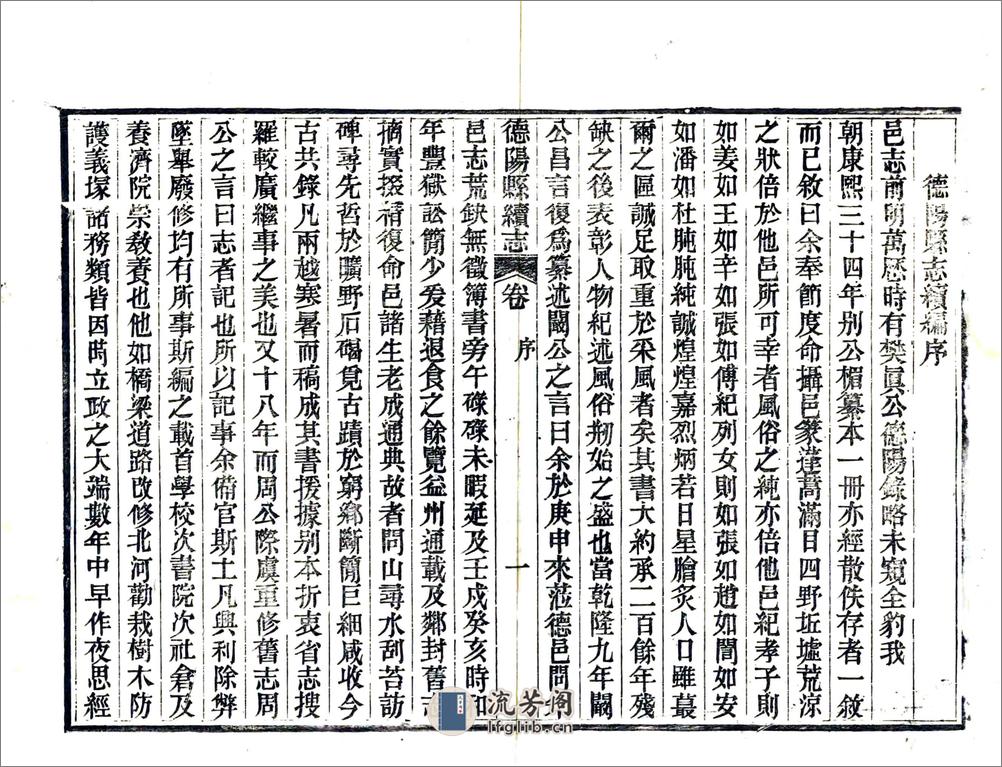 德陽縣志續編序
邑志前明萬歷時有樊眞公德陽錄略未窺全豹我
朝康熙三十四年别公楣纂本一冊亦經散佚存者一敘
而已敘曰余奉節度命攝邑篆達蒿滿目四野坵墟荒凉
之狀倍於他邑所可幸者風俗之純亦倍他邑紀孝子則
如姜如王如辛如張如傅紀列女則如張如趙如閻如安
如潘如杜肫肫純誠煌煌嘉烈炳若日星膾炙人口雖蕞
爾之區誠足取重於采風者矣其書大約承二百餘年殘
缺之後表彰人物紀述風俗剏始之盛也當乾隆九年闞
公昌言復爲纂述闞公之言曰余於庚申來蒞德邑問
德陽縣續志
卷
序
一
邑志荒缺無徵簿書旁午碌碌未暇延及壬戍癸亥時和
年豐獄訟簡少爰藉退食之餘覽益州通載及鄰封舊
摘實採福復命邑諸生老成通典故者問山尋水刮苔訪
碑尋先哲於曠野石碣覓古蹟於窮鄉斷簡巨細咸收今
古共錄凡兩越寒暑而稿成其書援據别本折衷省志搜
羅較廣繼事之美也又十八年而周公際虞重修舊志周
公之言曰志者記也所以記事余備官斯土凡興利除弊
墜舉廢修均有所事斯編之載首學校次書院次社倉及
養濟院崇敎養也他如橋梁道路改修北河勸栽樹木防
護義塚諸務類皆因時立政之大端數年中早作夜思經
流芳阁
lfglib.cn